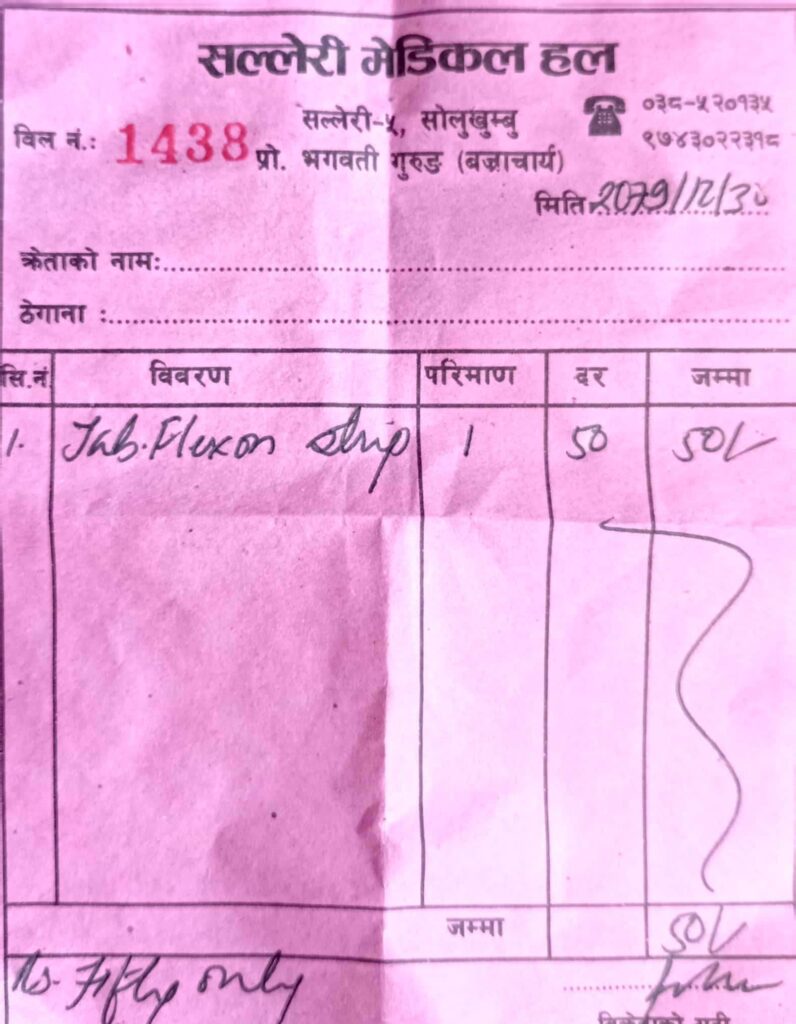 सल्लेरी मेडिकल हल
सल्लेरी-५, सोलुखुम्बु
०३८-५२०१३५
बिल नं.: 1438
प्रो. भगवती गुरुङ (बज्राचार्य)
९७४३०२२३१८
मिति 2079/12/30
क्रेताको नामः
ठेगाना :
सि.नं विवरण परिमाण दर जम्मा
1. Tab. Flexon strip 1 50 50/-
जम्मा 50/-
Rs. Fifty only